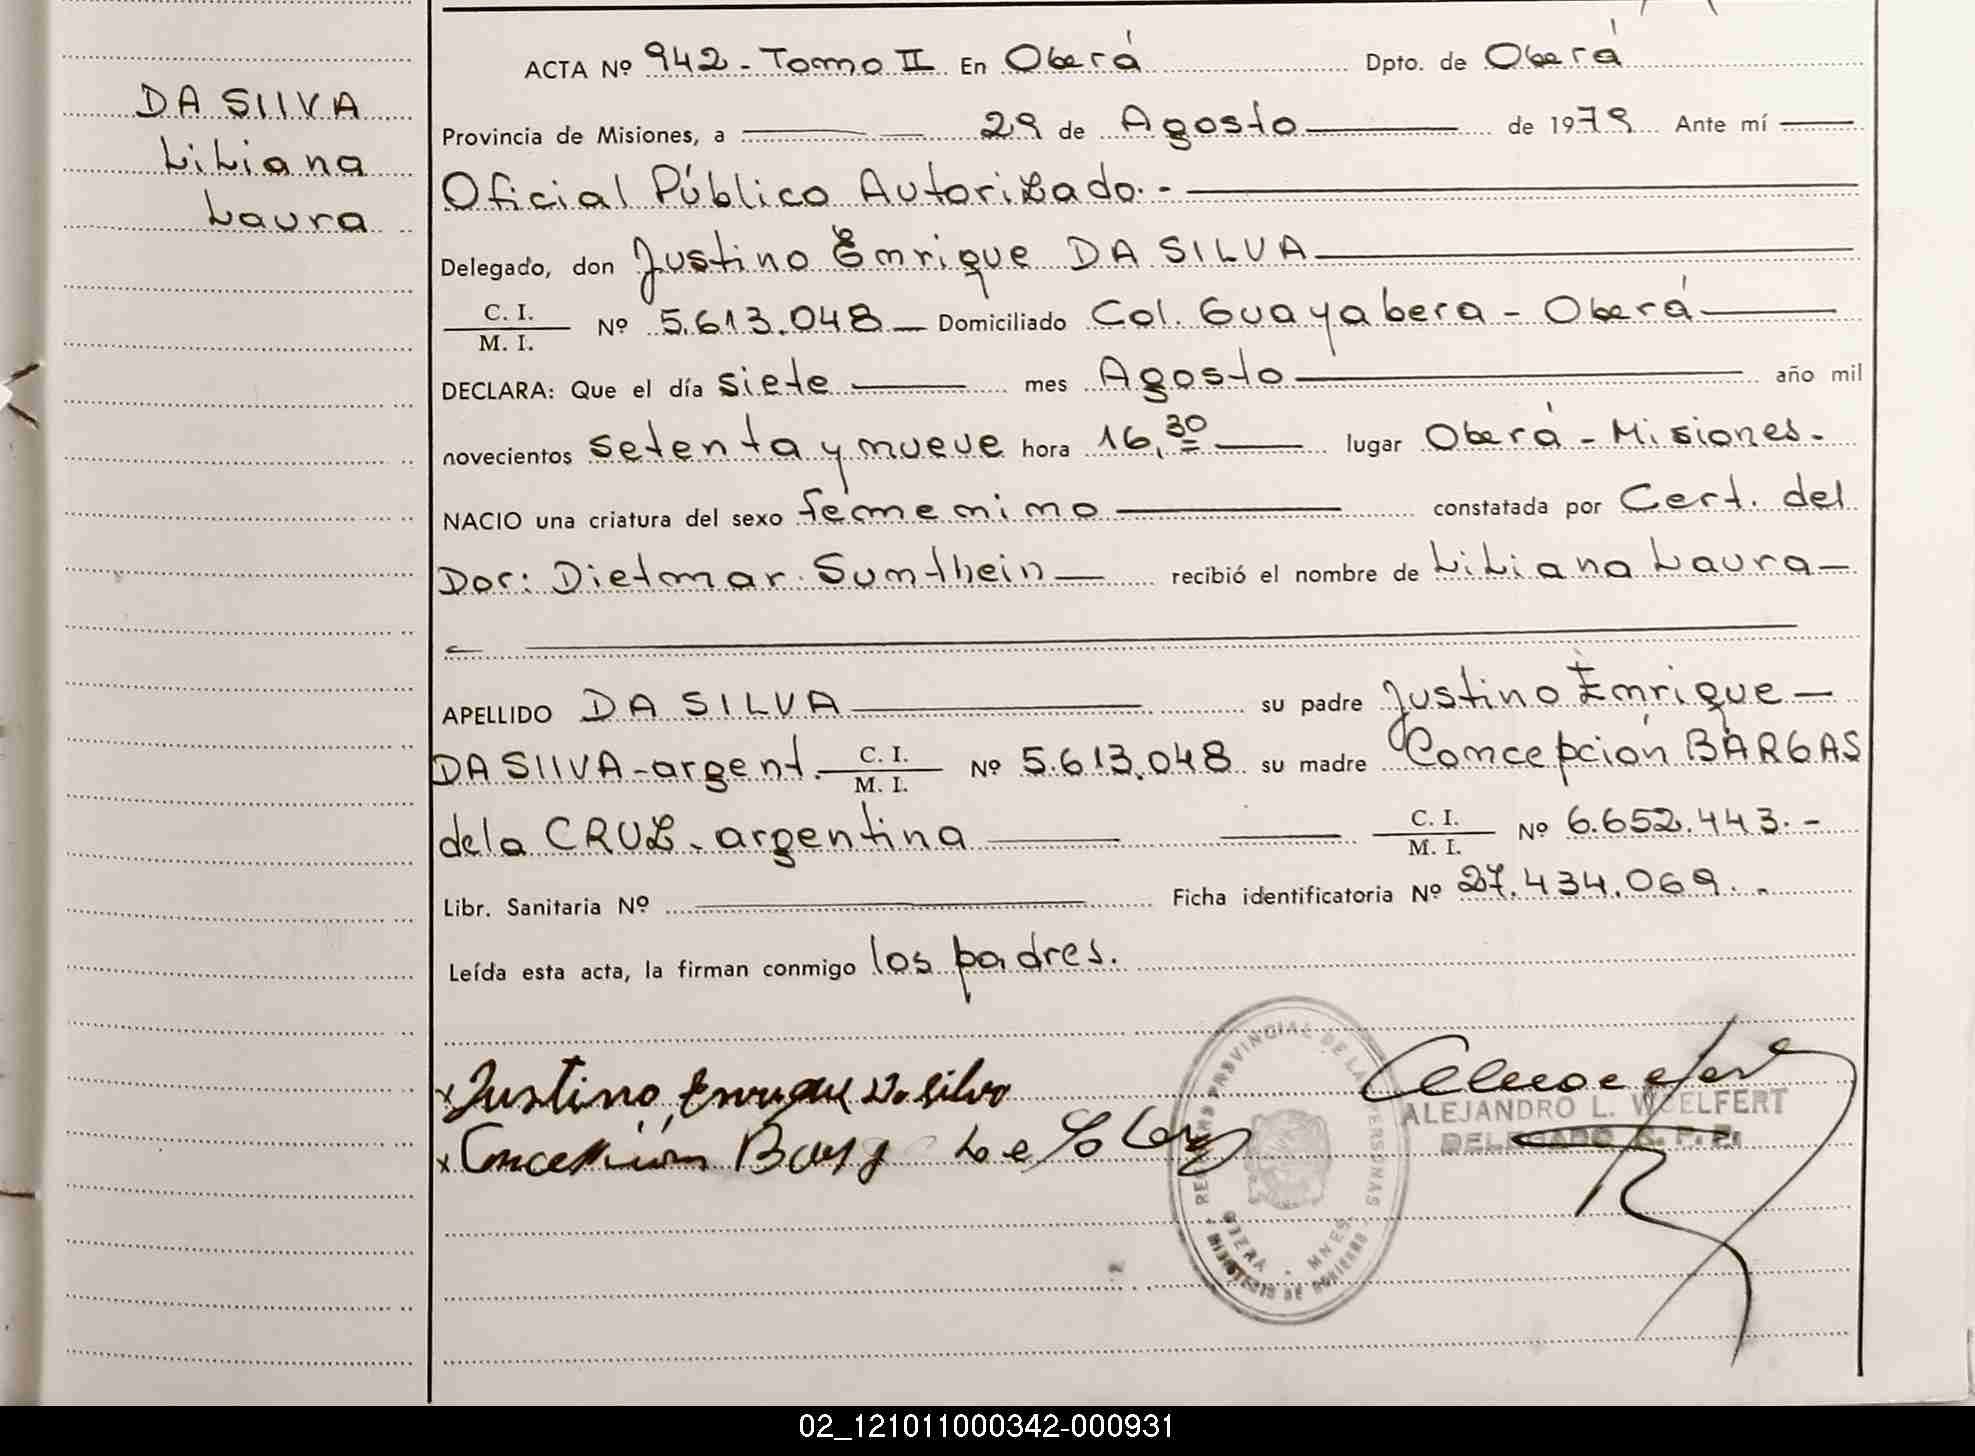 DA SIIVA
Liliana
Laura
ACTA Nº 942 - Tomo II En Oberá Dpto. de Oberá
Provincia de Misiones, a 29 de Agosto de 1979 Ante mí
Oficial Público Autorizado.-
Delegado, don Justino Enrique DA SILVA
C. I.
M. I. Nº 5.613.048 Domiciliado Col. Guayabera - Oberá
DECLARA: Que el día siete mes Agosto año mil
novecientos setenta y nueve hora 16,30 lugar Oberá - Misiones.
NACIO una criatura del sexo femenino constatada por Cert. del
Dor: Dietmar Sunthein recibió el nombre de Liliana Laura
APELLIDO DA SILVA su padre Justino Enrique
DA SIIVA - argent. C. I.
M. I. Nº 5.613.048 su madre Concepción BARGAS
de la CRUZ - argentina C. I.
M. I. Nº 6.652.443.-
Libr. Sanitaria Nº Ficha identificatoria Nº 27.434.069.-
Leída esta acta, la firman conmigo los padres.
x Justino Enrique Da silva
x Concepción
REGISTRO PROVINCIAL DE LAS PERSONAS
OBERA - MNES.
MINISTERIO DE GOBIERNO
ALEJANDRO L. WOELFERT
DELEGADO R. P. P.
02_121011000342-000931